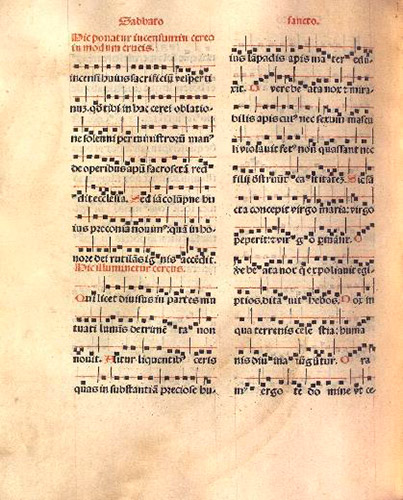 Sabbato sancto.
Hic ponatur incensum in cereo
in modum crucis.
incensi huius sacrificiū vesperti
nuz. qd̄ tibi in hac cerei oblatio-
ne solenni per ministrorū manꝰ
de operibus apū sacrosctā red
dit ecclesia. Sed iā colūpne hu
ius preconia nouimꝰ: quā in ho-
nore dei rutilās ignis accēdit.
Hic illuminetur cereus.
Qui licet diuisus in partes mu
tuati lumīs detrimēta non
nouit. Alitur liquentibꝰ ceris
quas in substantiā preciose hu-
ius lāpadis apis mater edu-
xit. O vere beata nox et mira-
bilis apis cuiꝰ nec sexum mascu
li violauit fetꝰ non quassant nec
filii destruūt castitatē. Sic sā
cta concepit virgo maria: virgo
peperit: et virgo permāsit. O
vere beata nox que expoliauit egi-
ptios ditauit hebreos. O nox in
qua terrenis celestia: huma
nis diuina iūgūtur. O ra
mꝰ ergo te domine vt ce